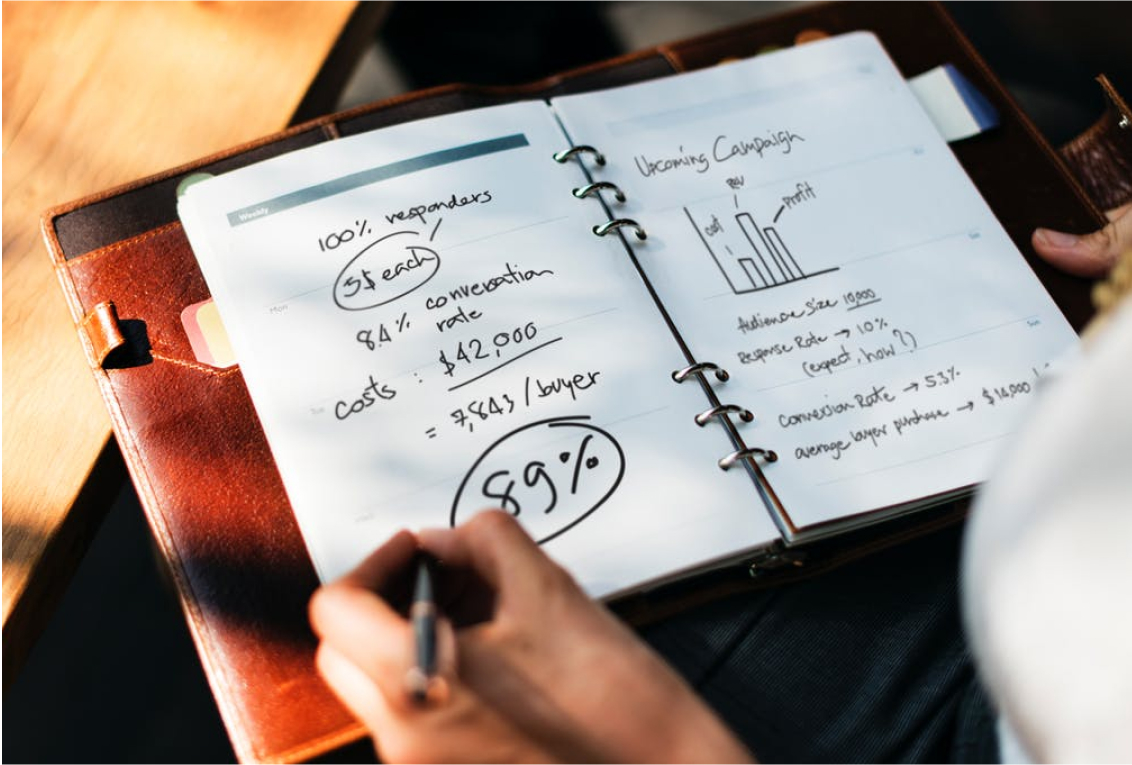 Weekly
100% responders
5$ each
8.4% conversation
rate
costs : $42,000
= 7,843 / buyer
89%
Mon
Upcoming Campaign
cost
rev
profit
Audience size 10,000
Response Rate → 10%
(expect, how?)
Conversion Rate → 5.3%
average buyer purchase → $ 14,000